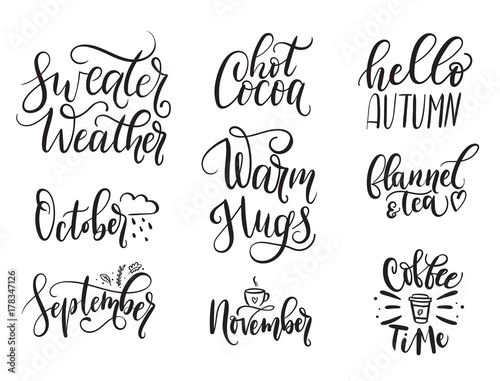 Sweater
Weather
hot
Cocoa
hello
AUTUMN
October
Warm
Hugs
flannel
& tea
September
November
Coffee
TiMe
Adobe Stock | #178347126